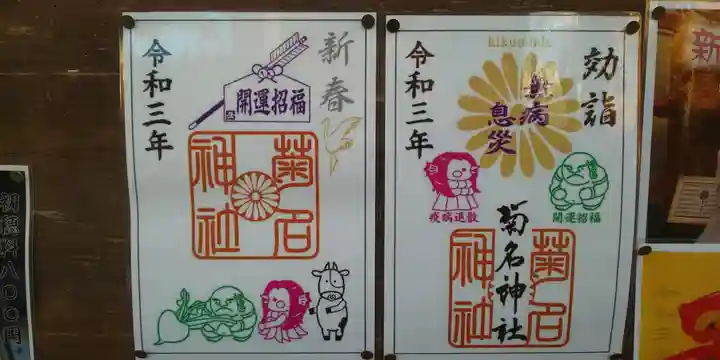 新春
開運招福
令和三年
菊名
神社
kikuna
効詣
無病
息災
令和三年
疫病退散
開運招福
菊名神社
菊名
神社
初穂料八〇〇円
新